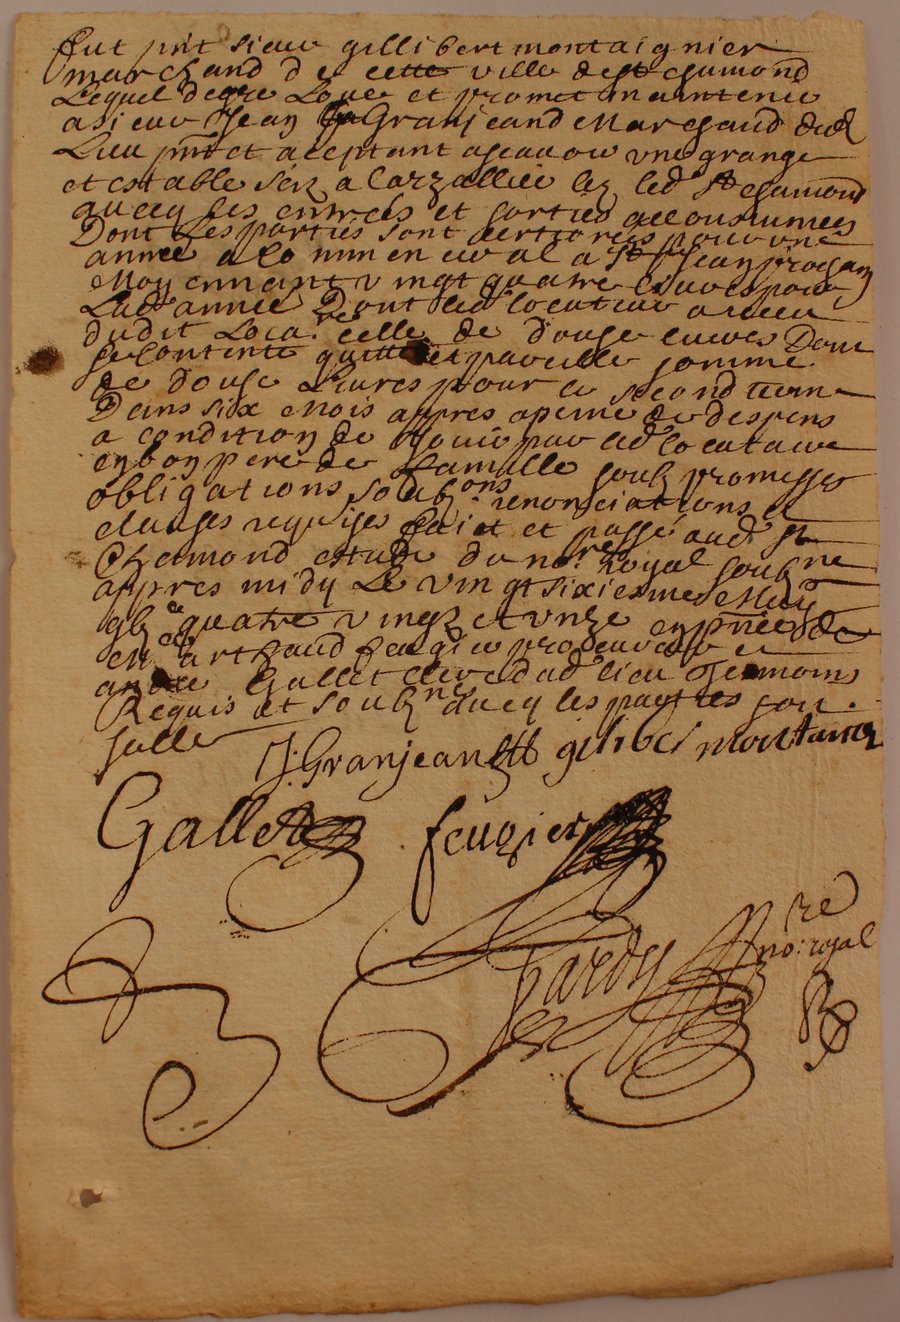 fut pnt sieur gillibert montaignier
marchand de cette ville de st chamond
Lequel de gre Loue et promet maintenir
a sieur Jean Granjeand Marchand dud
Lieu pnt et aceptant ascavoir une grange
et estable size a Larzalliee lez led st chamond
avecq ses entrees et sorties accoustumees
Dont les parties sont pour une
annee a commencer a st Jean prochain
Moyennant vingt quatre livres pour
Lad annee Dont led locateur a receu
dudit Loca.re celle de douse livres Dont
se contente quitte et pareille somme
de douse Livres pour le second terme
Dans six Mois appres a peine de despens
a condition de Jouir par led locataire
en bon pere de famille soubz promesses
obligations soubz.ons renonciations et
clauses requises fait et passé aud st
Chamond estude du no.re royal soubz.ne
appres midy Le vingt sixiesme
gb.e quatre vingz et unze en pnce de
arthaud feugier procureur et
andre Gallet clerc dud lieu temoins
Requis et soubz.nes avecq les parties
J: Granjean gilibert montanier
Gallet feugier
Tardy no:re royal